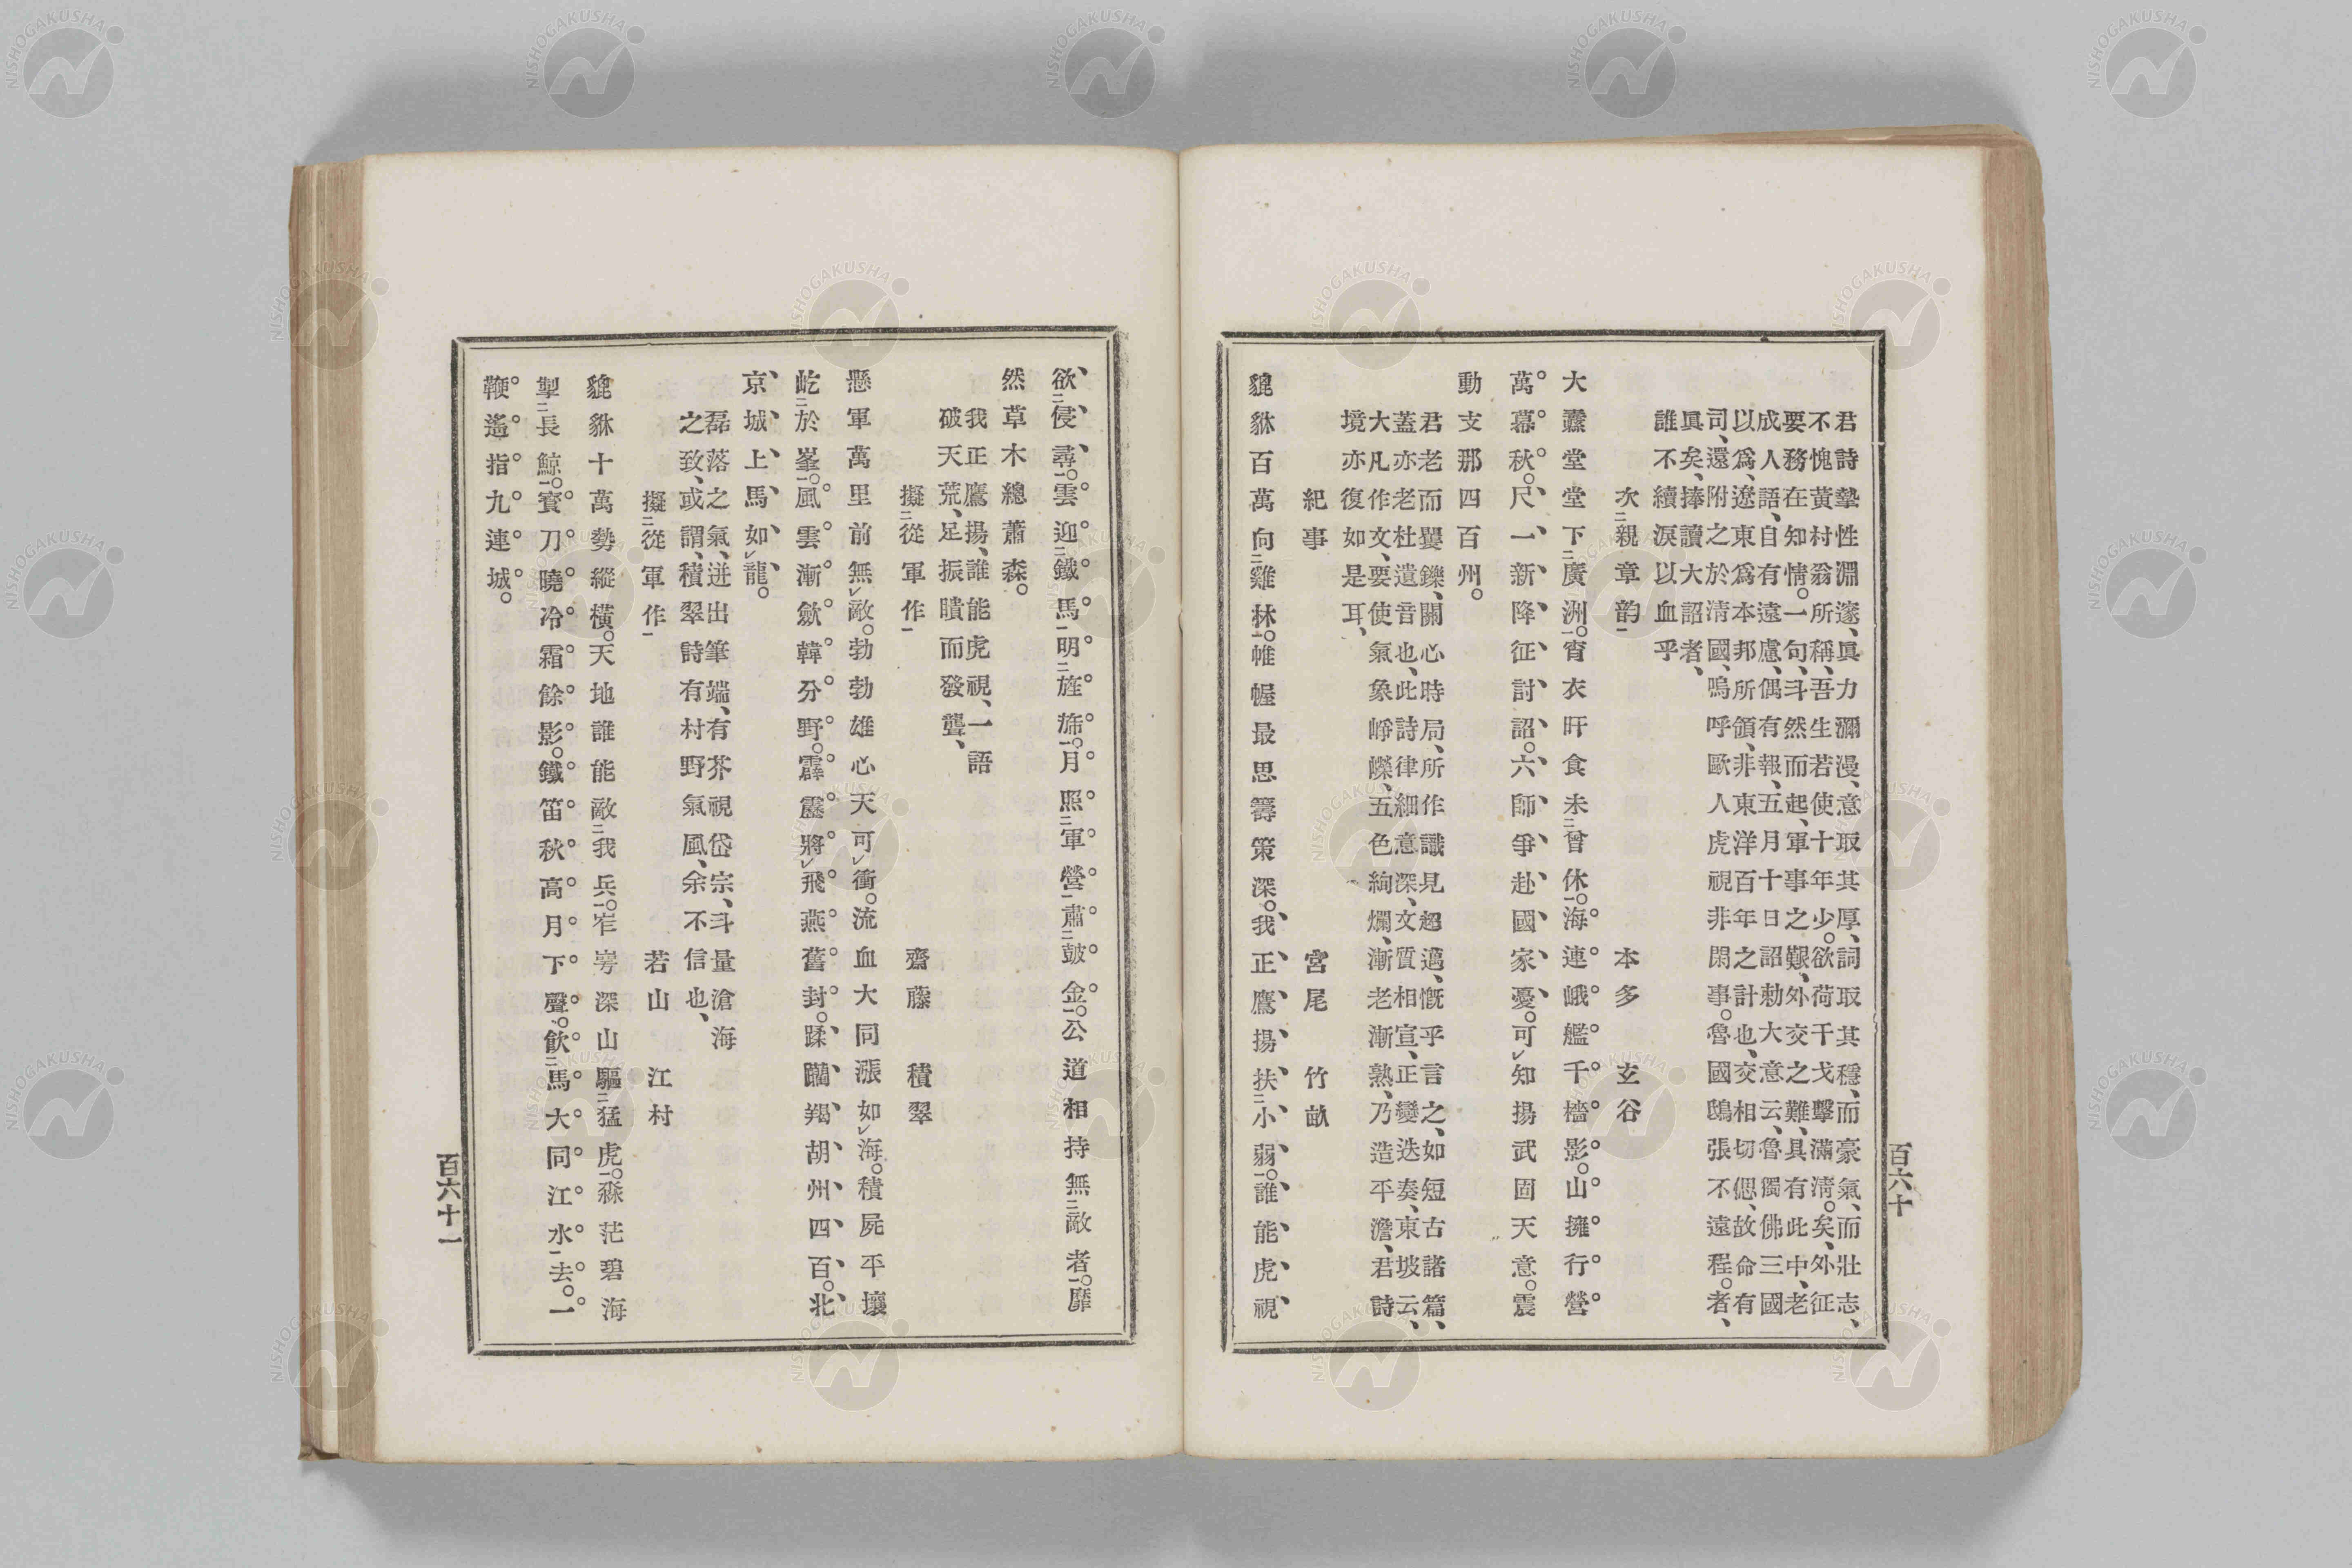 君詩摯性淵邃、眞力瀰漫、意取其厚、詞取其穩、而豪氣、而壯志、
不愧黃村翁所稱、吾生若使十年少。欲荷干戈擊滿淸。矣、外征
要務在知情。一句、斗然而起、軍事之艱、外交之難、具有此中、老
成人語、自有遠慮、偶有報、五月十日詔勅大意云、魯獨佛三國
以爲、遼東爲本邦所領、非東洋百年之計也、交相切偲、故命有
司、還附之於淸國、嗚呼歐人虎視非閑事。魯國鴟張不遠程。者、
眞矣、捧讀大詔者、
誰不續淚以血乎
次親章韵 本多玄谷
大纛堂堂下廣洲。宵衣旰食未曾休。海連峨艦千檣影。山擁行營
萬幕秋。尺一新降征討詔。六師爭赴國家憂。可知揚武固天意。震
動支那四百州。
君老而矍鑠、關心時局、所作識見超邁、慨乎言之、如短古諸篇、
蓋亦老杜遺音也、此詩律細意深、文質相宣、正變迭奏、東坡云、
大凡作文、要使氣象崢嶸、五色絢爛、漸老漸熟、乃造平澹、君詩
境亦復如是耳、
紀事 宮尾竹畝
貔貅百萬向雞林。帷幄最思籌策深。我正鷹揚扶小弱。誰能虎視
百六十
欲侵尋。雲迎鐵馬明旌旆。月照軍營肅鼓金。公道相持無敵者。靡
然草木總蕭森。
我正鷹揚、誰能虎視、一語
破天荒、足振聵而發聾、
擬從軍作 齋藤積翠
懸軍萬里前無敵。勃勃雄心天可衝。流血大同漲如海。積屍平壤
屹於峯。風雲漸歛韓分野。霹靂將飛燕舊封。蹂躪羯胡州四百。北
京城上馬如龍。
磊落之氣、迸出筆端、有芥視岱宗、斗量滄海
之致、或謂、積翠詩有村野氣風、余不信也、
擬從軍作 若山江村
貔貅十萬勢縱橫。天地誰能敵我兵。岝崿深山驅猛虎。淼茫碧海
掣長鯨。寳刀曉冷霜餘影。鐵笛秋高月下聲。飮馬大同江水去。一
鞭遙指九連城。
百六十一